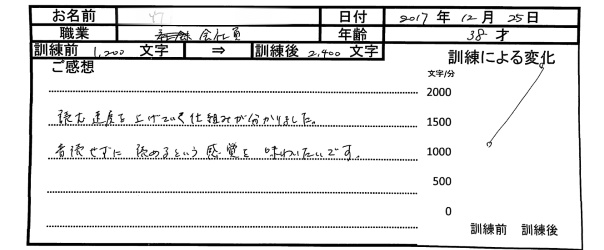 お名前 日付 2017 年 12 月 25 日
職業 会社員 年齢 38 才
訓練前 1,200 文字 ⇒ 訓練後 2,400 文字 訓練による変化
ご感想 文字/分
2000
読む速度を上げていく仕組みが分かりました。 1500
音読せずに読めるという感覚を味わいたいです。 1000
500
0
訓練前 訓練後